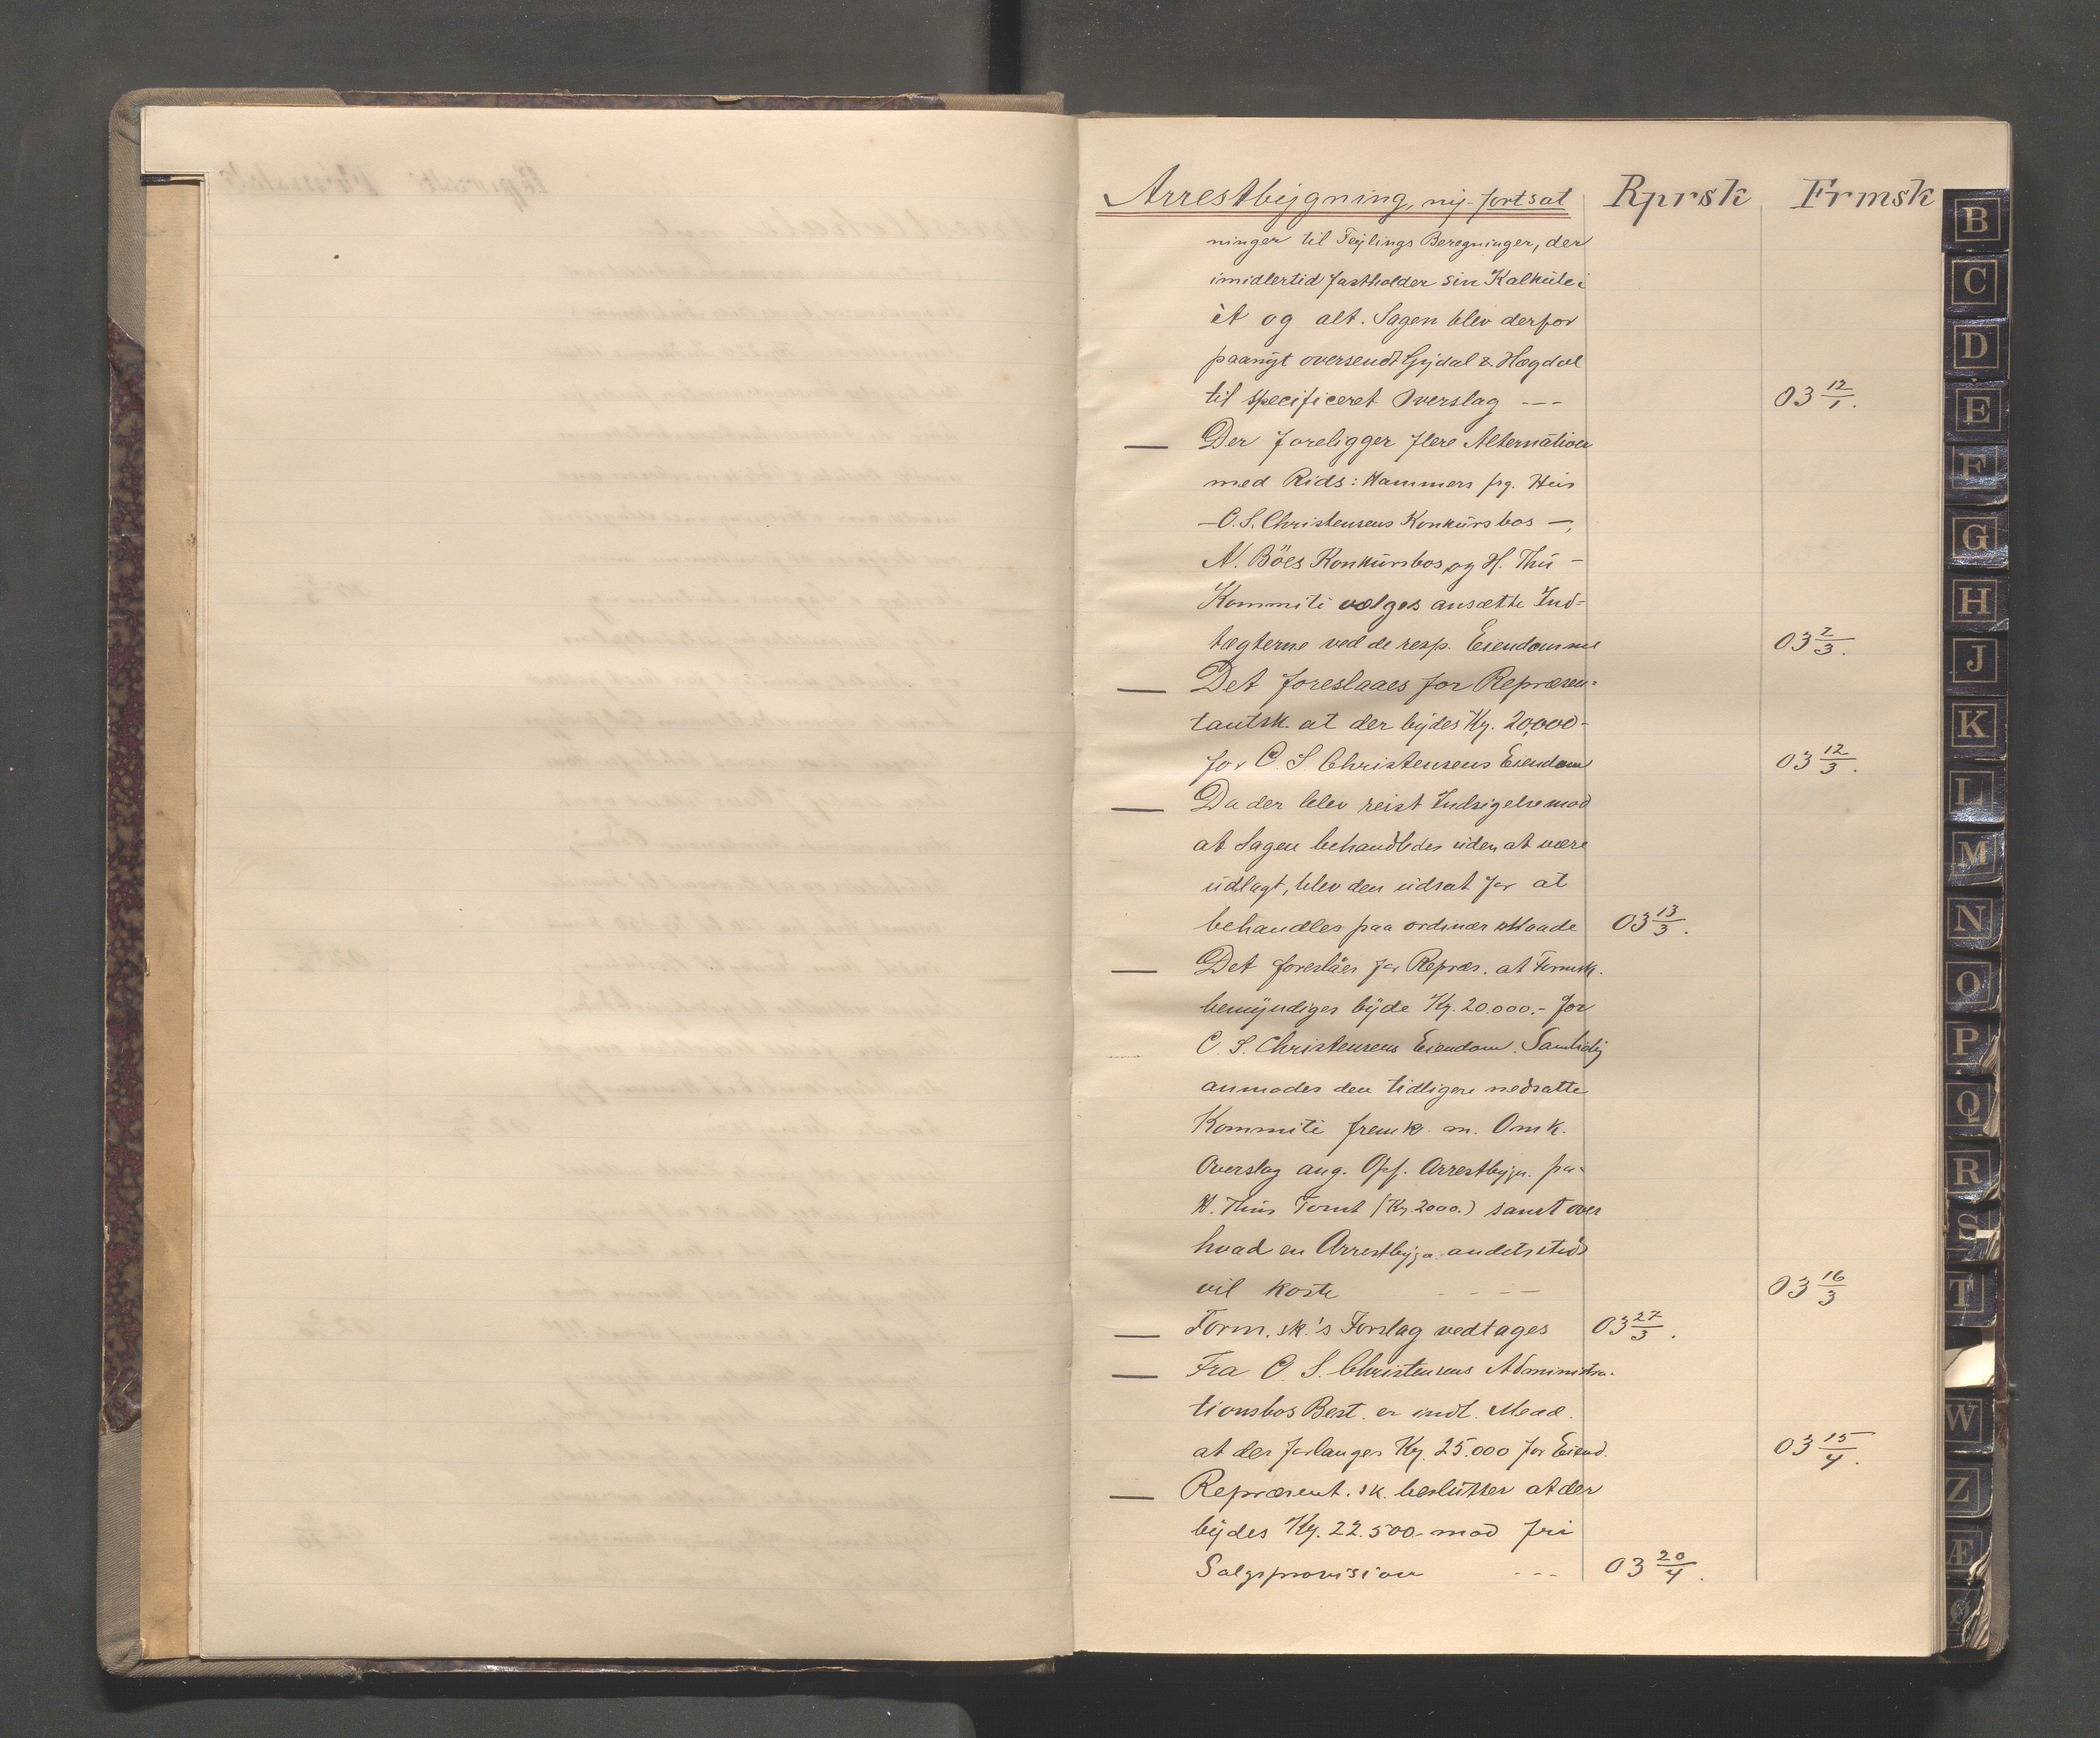 Arrestbygning, ny fortsat Rprsk Frmsk
ninger til Feylings Beregninger, der
imidlertid fastholder sin Kalkule i
ét og alt. Sagen blev derfor
paanyt oversendt Gjdal & Hægdal
til specificeret Overslag --- 03 12/1.
— Der foreligger flere Alternativer
med Rids: Hammers frg. Hus
— O. S. Christensens Konkursbos —,
N. Böes Konkursbos og H. Thu -
Kommiti vælges ansætte Ind=
tægterne ved de resp. Eiendomme 03 2/3.
— Det foreslaaes for Repræsen=
tantsk. at der bydes Kr. 20,000-
for O. S. Christensens Eiendom 03 12/3.
— Da der blev reist Indsigelse mod
at Sagen behandledes uden at være
udlagt, blev den udsat for at
behandles paa ordinær Maade 03 13/3.
— Det foreslåes for Repræs. at Formsk.
bemyndiges byde Kr. 20.000.- for
O. S. Christensens Eiendom. Samtidig
anmodes den tidligere nedsatte
Kommiti fremk. m. Omk.
Overslag ang. Opf. Arrestbygn. på
H. Thus Tomt (Kr. 2000.) samt over
hvad en Arrestbyg. andetsteds
vil koste ---- 03 16/3
— Form.sk.'s Forslag vedtages 03 27/3.
— Fra O. S. Christensens Administra-
tionsbos Best. er indl. Medd.
at der forlanges Kr. 25.000 for Eiend. 03 15/4.
— Repræsent.sk. beslutter at der
bydes Kr. 22.500- mod fri
Salgsprovision --- 03 20/4.
B
C
D
E
F
G
H
J
K
L
M
N
O
P
Q
R
S
T
W
Z
Æ
Ø